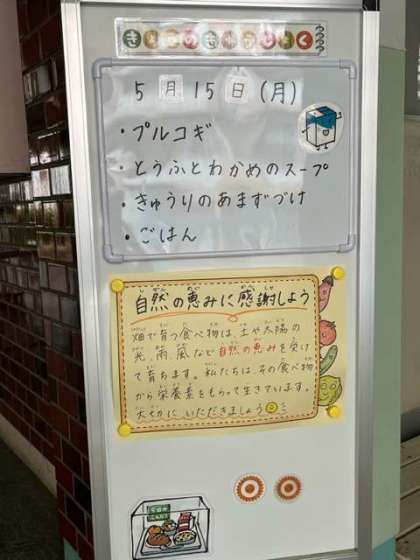 きょうのきゅうしょく
5月15日(月)
・プルコギ
・とうふとわかめのスープ
・きゅうりのあまずづけ
・ごはん
自然の恵みに感謝しよう
畑で育つ食べ物は、土や太陽の
光、雨、風など自然の恵みを受け
て育ちます。私たちは、その食べ物
から栄養素をもらって生きています。
大切に いただきましょう